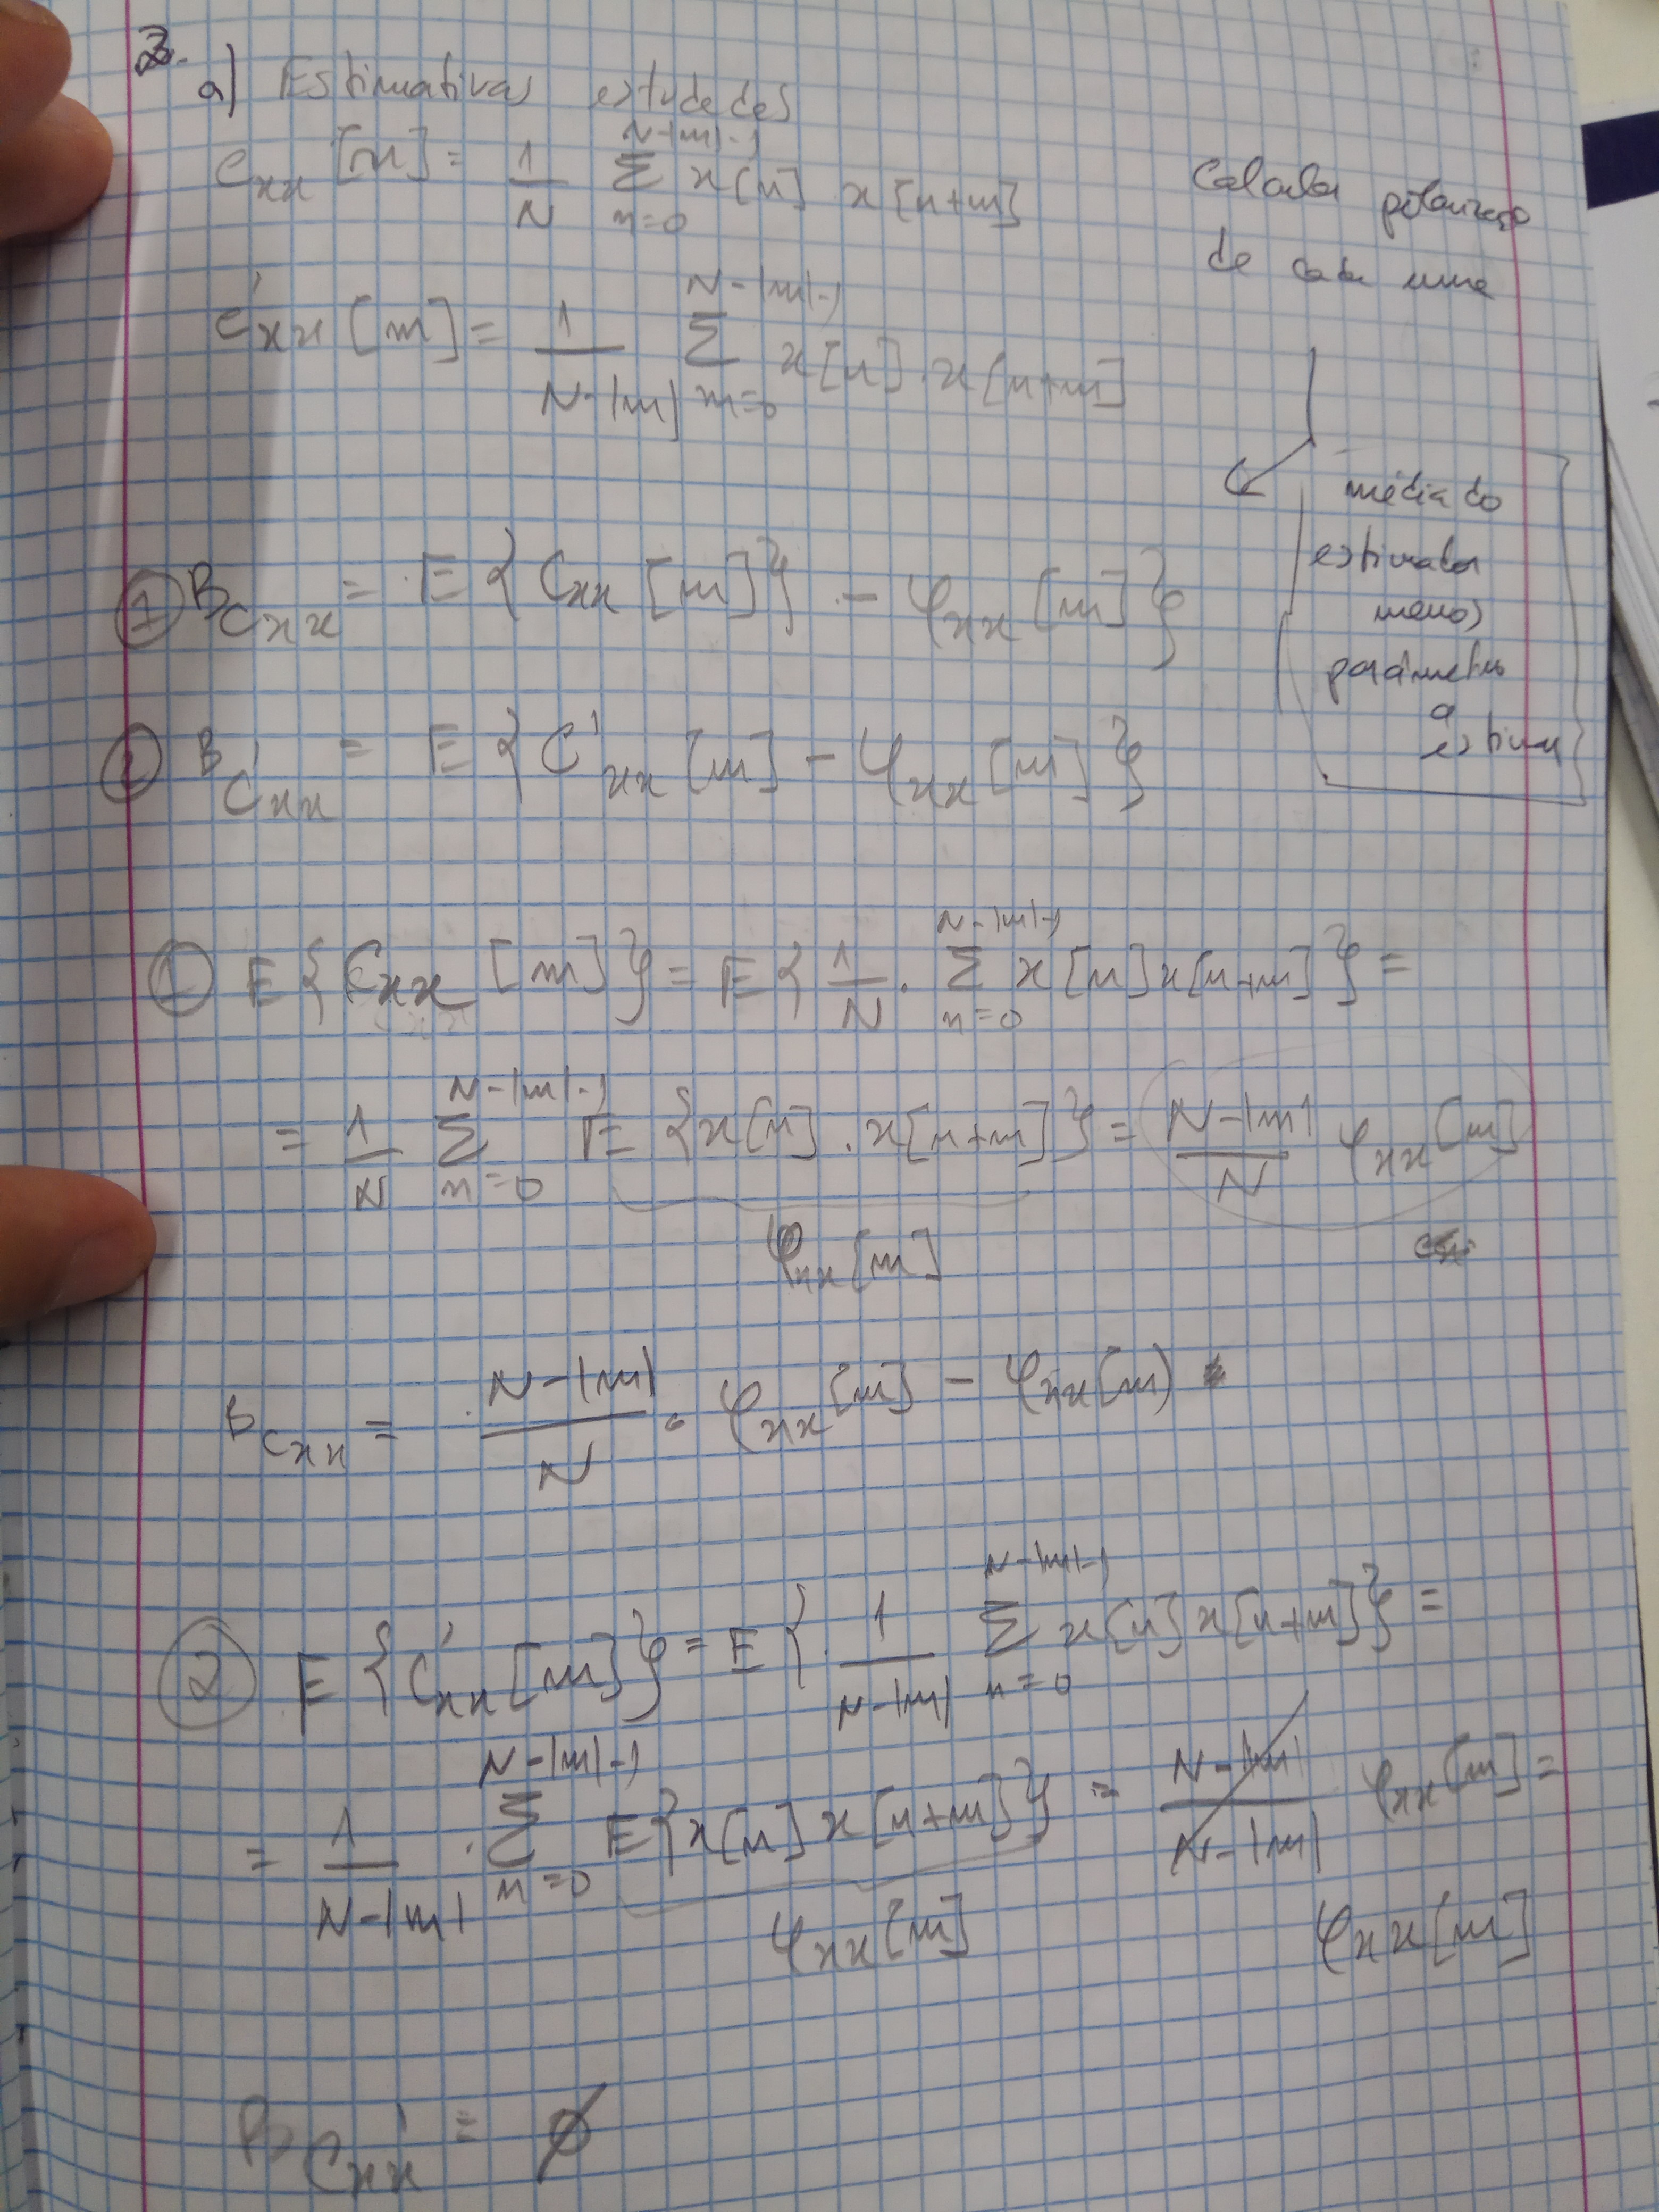 2.
a) Estimativas estudadas
Cxx[m] = 1/N Σ_{n=0}^{N-|m|-1} x[n] . x[n+m]
C'xx[m] = 1/(N-|m|) Σ_{n=0}^{N-|m|-1} x[n] . x[n+m]
Calcular polarização
de cada uma
média do
estimador
menos
parâmetro
a
estimar
① B_Cxx = E{Cxx[m]} - φxx[m]}
② B_C'xx = E{C'xx[m] - φxx[m]}
① E{Cxx[m]} = E{1/N . Σ_{n=0}^{N-|m|-1} x[n]x[n+m]} =
= 1/N Σ_{n=0}^{N-|m|-1} E{x[n] . x[n+m]} = (N-|m|)/N φxx[m]
φxx[m]
B_Cxx = (N-|m|)/N . φxx[m] - φxx[m]
② E{C'xx[m]} = E{1/(N-|m|) Σ_{n=0}^{N-|m|-1} x[n]x[n+m]} =
= 1/(N-|m|) . Σ_{n=0}^{N-|m|-1} E{x[n]x[n+m]} = (N-|m|)/(N-|m|) φxx[m] =
φxx[m] φxx[m]
B_C'xx = ∅